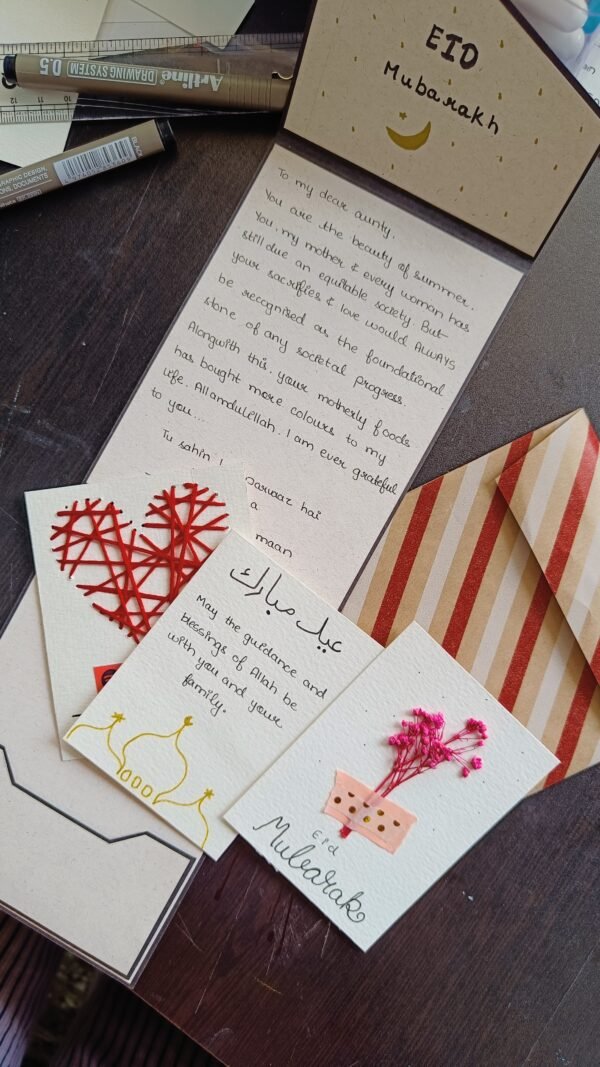 Artline
DRAWING SYSTEM 0.5
12 11 10
BLACK
GRAPHIC DESIGN,
DOCUMENTS
EID
Mubarakh
To my dear aunty,
You are the beauty of summer.
You, my mother & every woman has
still due an equitable society. But
your sacrifies & love would ALWAYS
be recognised as the foundational
stone of any societal progress.
Alongwith this, your motherly foods
has bought more colours to my
life. Allamdulillah. I am ever grateful
to you...
Tu sahin
parwaaz hai
a
maan
عيد مبارك
May the guidance and
blessings of Allah be
with you and your
family.
Eid
Mubarak